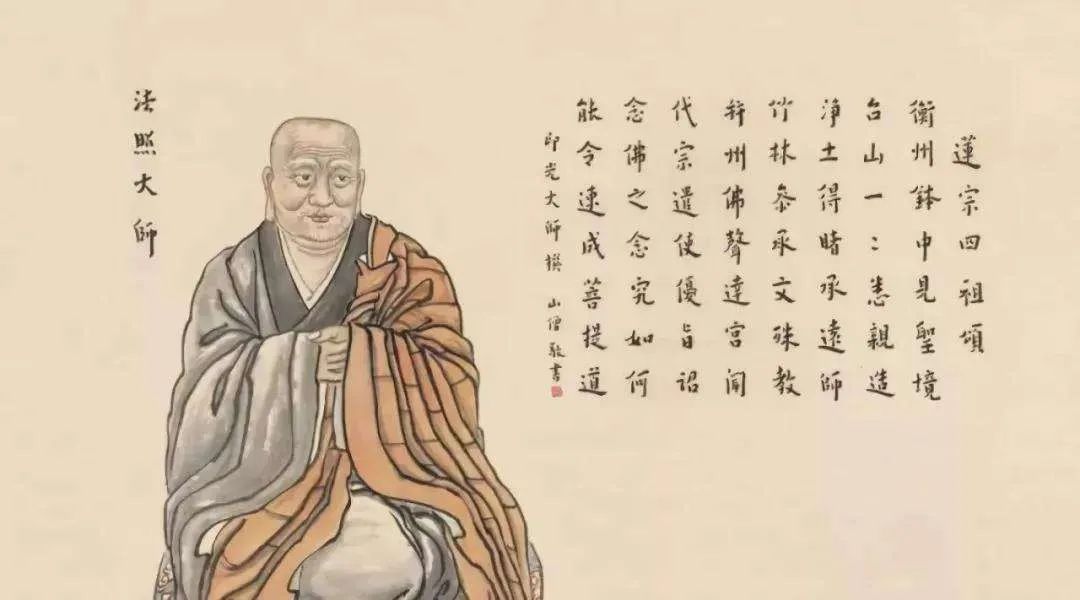 蓮宗四祖頌
衡州鉢中見聖境
台山一〻悉親造
淨土得睹承遠師
竹林叅承文殊教
并州佛聲達宮闈
代宗遣使優旨詔
念佛之念究如何
能令速成菩提道
印光大師撰 山僧敬書
法照大師